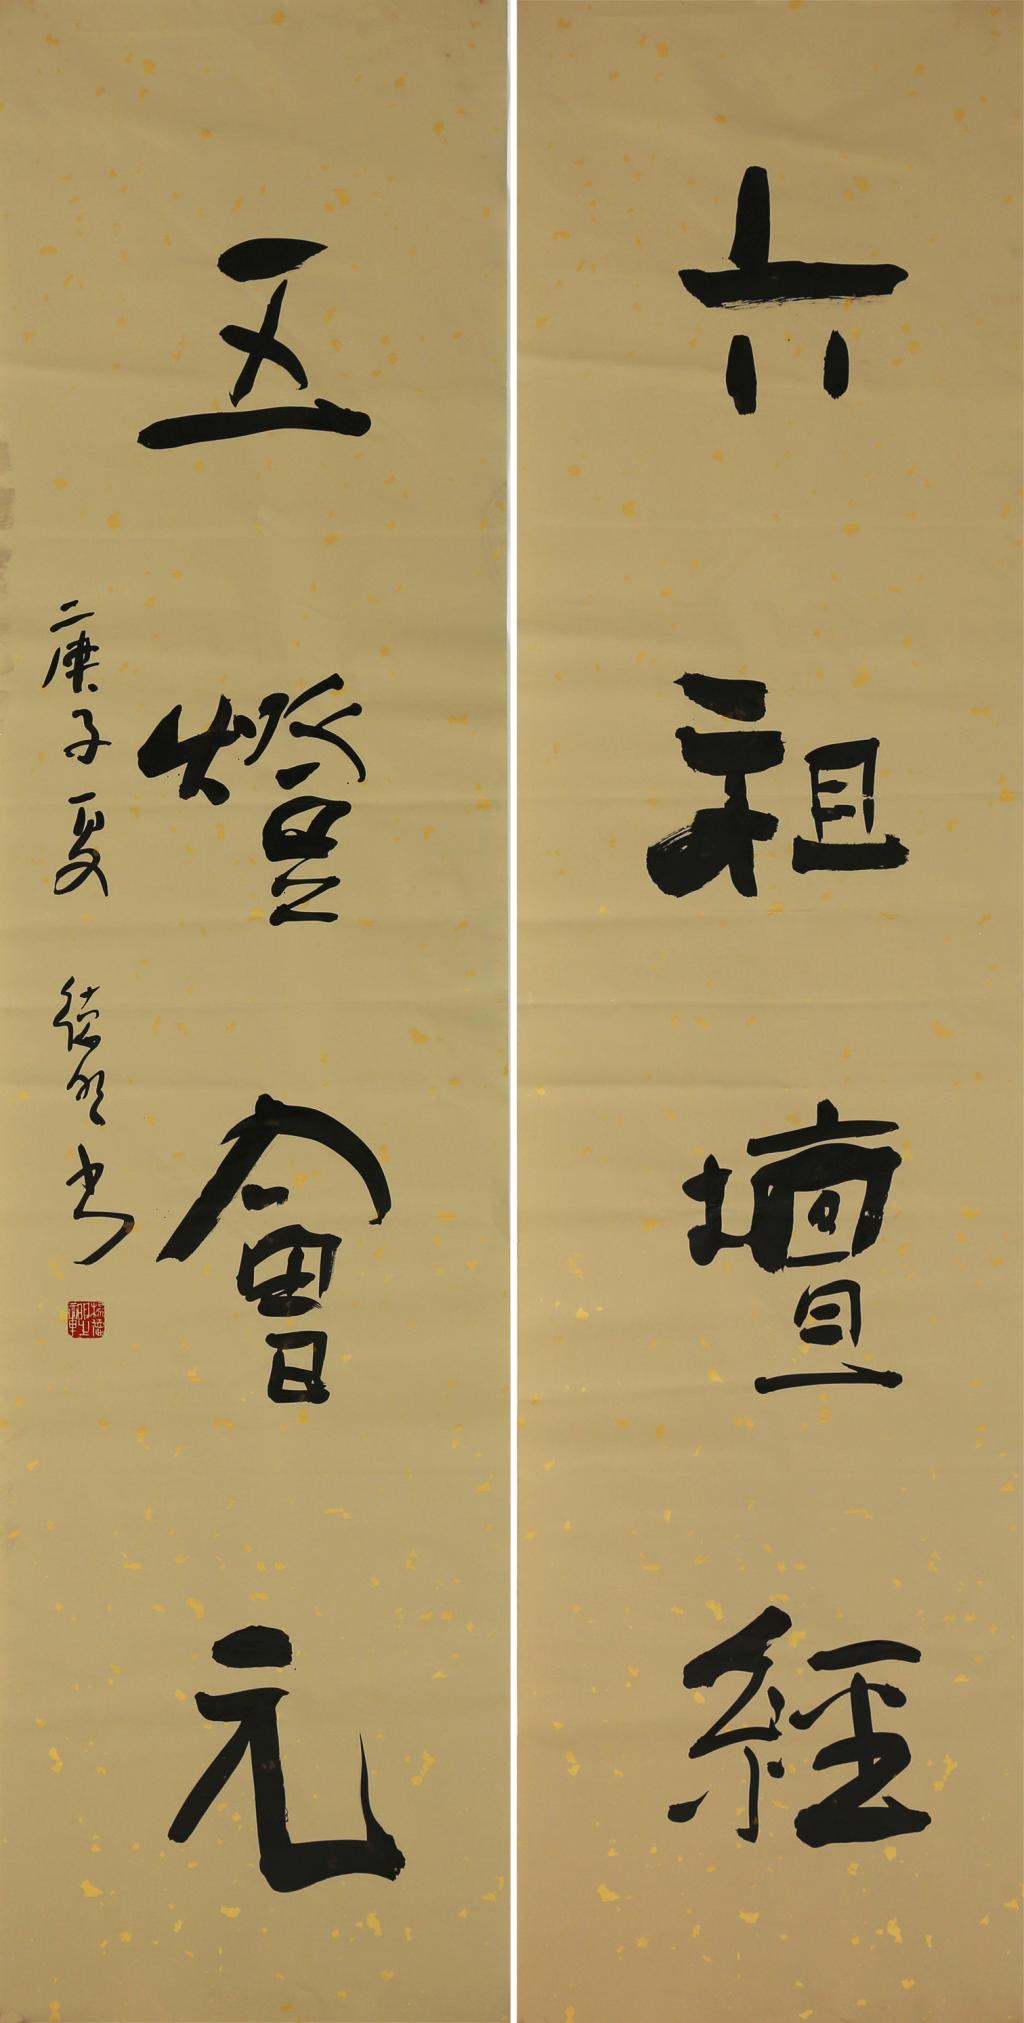 六祖壇經
五燈會元
庚子夏 德明書